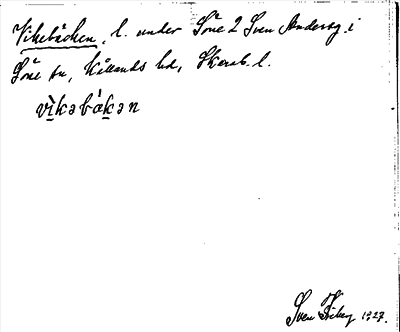 Vikebäcken, l. under Söne 2 Sven Andersg. i
Söne sn, Kållands hd, Skarab. l.
vìkəbàkən
Sven 1927.